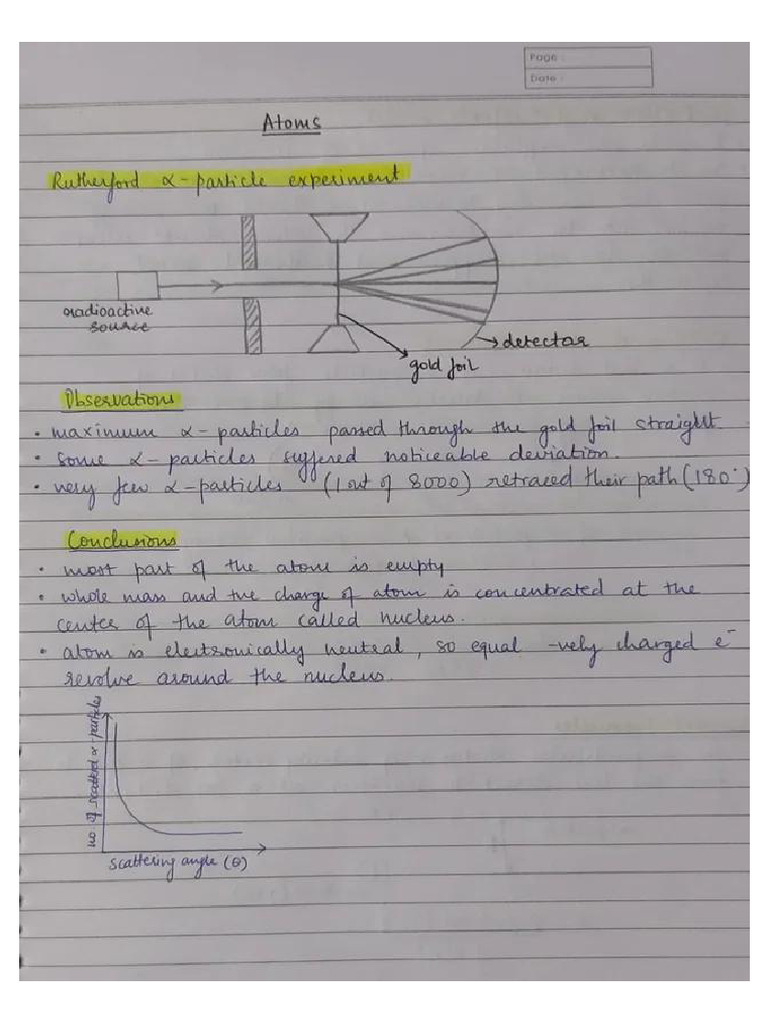 Page :
Date :
Atoms
Rutherford α-particle experiment
radioactive
source
detector
gold foil
Observations
• maximum α-particles passed through the gold foil straight
• some α-particles suffered noticeable deviation.
• very few α-particles (1 out of 8000) retraced their path (180°)
Conclusions
• most part of the atom is empty
• whole mass and +ve charge of atom is concentrated at the
center of the atom called nucleus.
• atom is electronically neutral, so equal -vely charged e⁻
revolve around the nucleus.
no. of scatterd α-particles
scattering angle (θ)